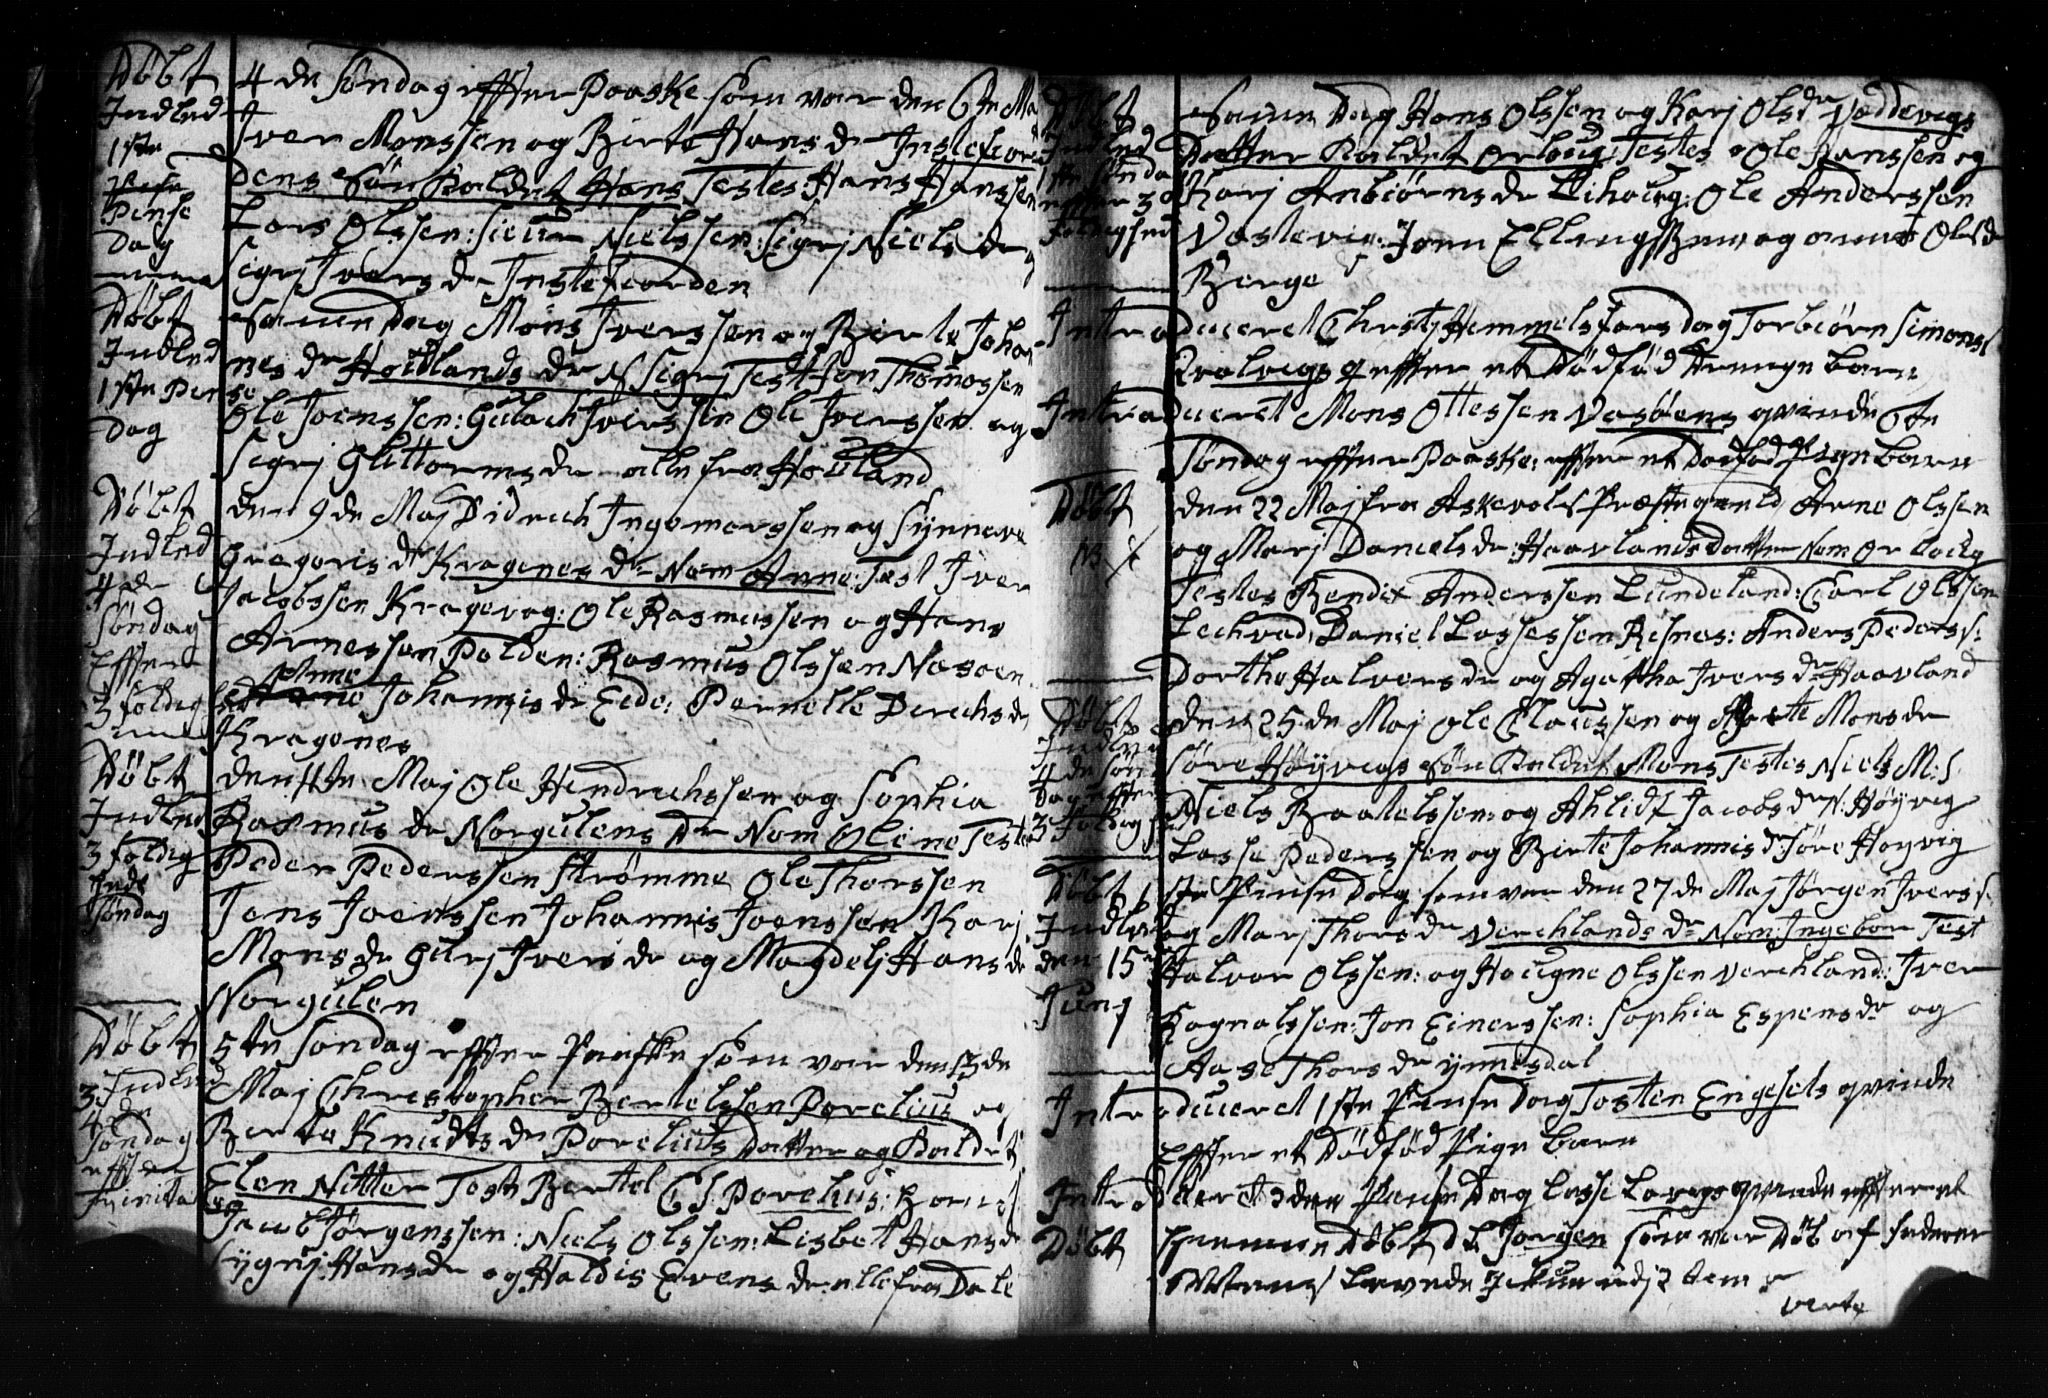 Døbt
Indled
1ste
Pinse
Dag
4de Søndag effter Paaske som var den 6te Maj
Iver Monssen og Birte Hans dr Instefior
dens Søn Kaldet Hans Testes Hans Hanssen
Lars Olssen: Siur Nielssen: Sigrj Niels dr og
Sigrj Ivers dr Instefiorden
Døbt
Indled
1ste Pinse
Dag
Samme Dag Mons Iverssen og Birte Johan
nes dr Høilands dr N Sigrj Test Jon Thomassen
Ole Joenssen: Gulach Iverssen Ole Iverssen og
Sigrj Guttorms dr alle fra Høiland
Døbt
Indled
4de
Søndag
Effter
3foldighed
den 9de Maj Didrich Ingemarssen og Synneve
Gregoris dr Kragenes dr Nom Anne: Test Iver
Jacobssen Kragevog: Ole Rasmussen og Hans
Arnessen Polden: Rasmus Olssen Nosoen
Anne Johannis dr Eide: Pernelle Dirichs dr
Kragenes
Døbt
Indled
3foldig
heds
Søndag
den 11te Maj Ole Hendrichssen og Sophia
Rasmus dr Norgulens dr Nom Oline Testes
Peder Pederssen Strømme Ole Thorssen
Jens Joenssen Johannis Joenssen Karj
Mons dr Gurj Ivers dr og Magdelj Hans dr
Norgulen
Døbt
Indled
4de
Søndag
effter
Trinitatis
5te Søndag effter Paaske som var den 13de
Maj Christopher Bertelssen Porelius og
Birte Knudts dr Porelius Datter og Kaldet
Elen Nitter Test Bertel CS Porelius:
Jacob Jørgenssen: Niels Olssen: Lisbet Hans dr
Sygnj Hans dr og Haldis Evens dr alle fra Dale
Døbt
Indled
1ste Søndag
effter 3
foldighed
Samme Dag Hans Olssen og Karj Ols dr Vaddevigs
Datter Kaldet Orloug Testes Ole Hanssen og
Karj Anbiørns dr Lihoug: Ole Anderssen
Vaslevig: Joen Ellingssen og Anne Ols dr
Berge
Introduceret Christj Himmelfars Dag Torbiørn Simons
Qvalvigs q effter et Dødfød Drenge barn
Introduceret Mons Ottessen Vasøens qvinde 6te
Søndag effter Paaske: effter et Dødfød Pige barn
Døbt
NB
den 22 Maj fra Askevols Præstegield Arne Olssen
og Marj Daniels dr Haavlands Datter Nom Orloug
Testes Bendix Anderssen Lundeland: Carl Olssen
Lechvad, Daniel Lassessen Risnes: Anders Pederss:
Dorthe Halvers dr og Agatha Ivers dr Haavland
Døbt
Indled
4de Søn
Dag effter
3foldighed
den 25de Maj Ole Claussen og Marte Mons dr
Søre Høyvigs Søn Kaldet Mons Testes Niels M:S
Niels Baatelssen og Ahlidt Jacobs dr N: Høyvig
Lasse Pederssen og Birte Johannis dr Søre Høyvig
Døbt
Indled
den 15
Junj
1ste Pinse Dag som var den 27de Maj Jørgen Ivers s:
og Marj Thors dr Verchlands dr Nom: Ingebor Test
Halvor Olssen: og Haugne Olssen Verchland: Iver
Ragnalssen: Jon Einerssen: Sophia Espens dr og
Aase Thors dr Ynnesdal
Introduceret 1ste Pinse Dag Tosten Engesets qvinde
Effter et Dødfød Pige barn
Introduceret 3den Pinse Dag Lasse Lavigs qvinde effter et
Døbt
Jørgen som var Døb af
Levede
verte